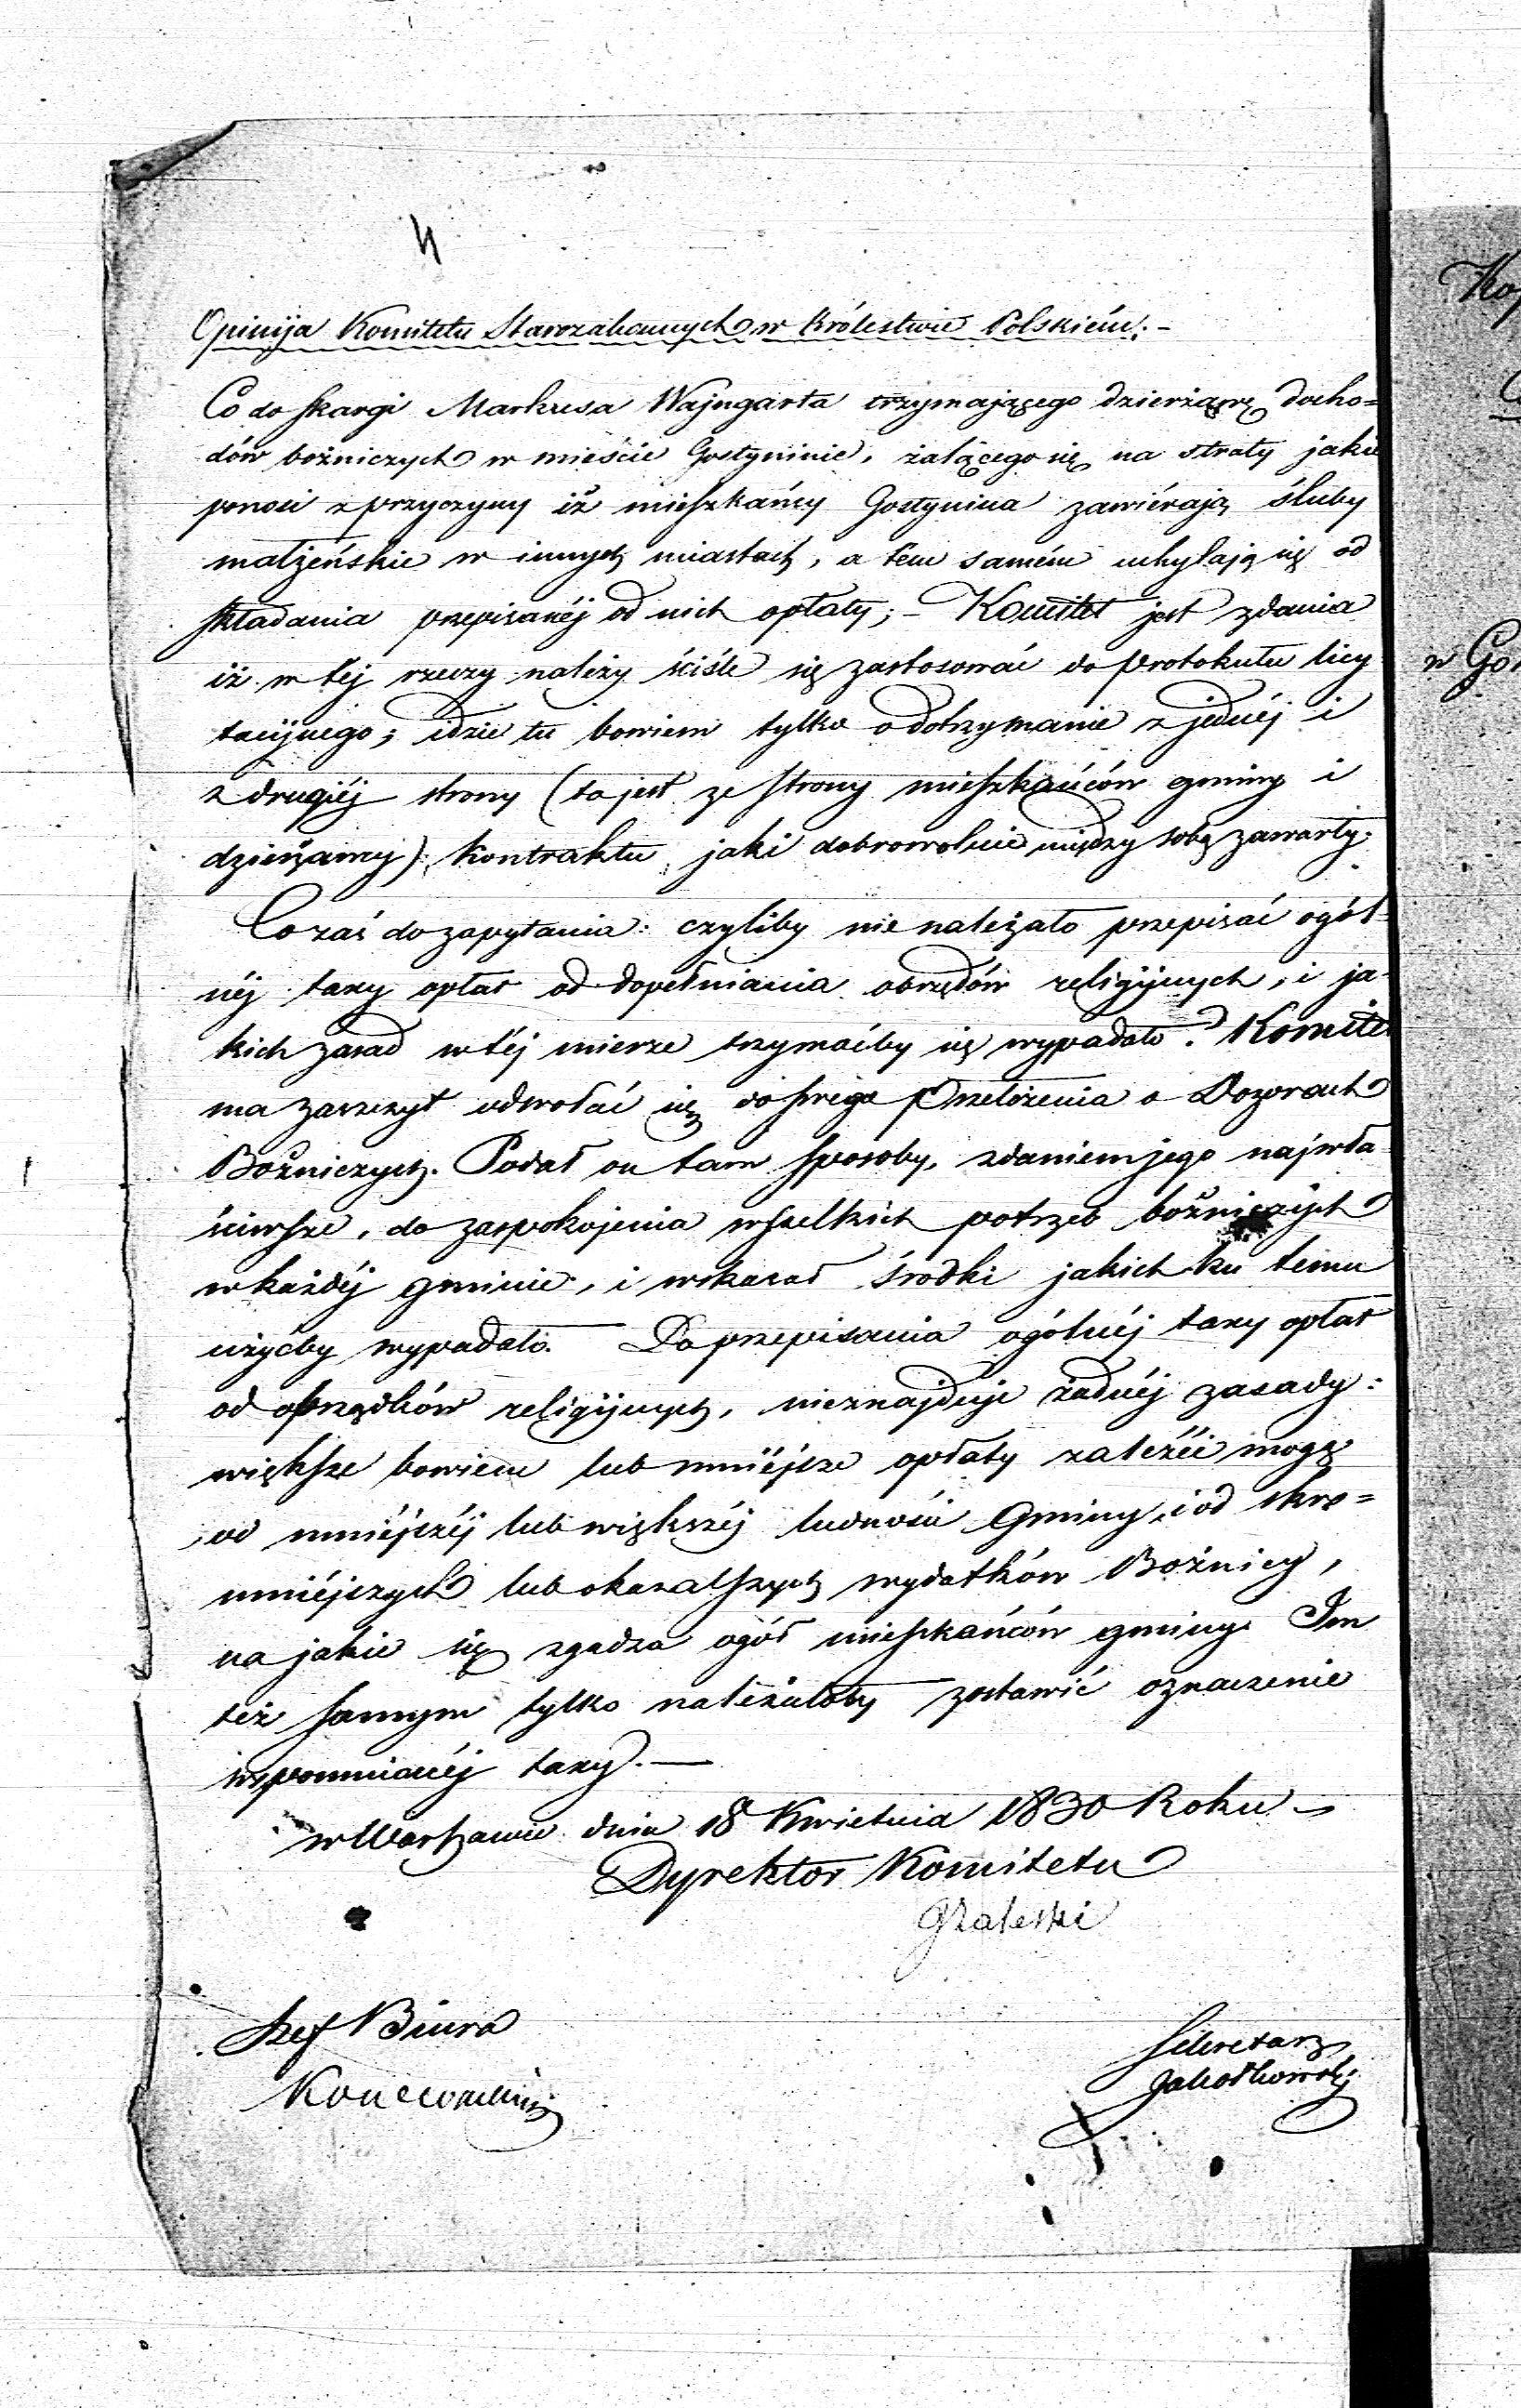 4
Opinija Komitetu Starozakonnych w Królestwie Polskiém.-
Co do skargi Markusa Wajngarta trzymającego dzierżawę docho=
dów bożniczych w mieście Gostyninie, żalącego się na straty jakie
ponosi z przyczyny iż mieszkańcy Gostynina zawiérają śluby
małżeńskie w innych miastach, a tem samém uchylają się od
składania przepisanéj od nich opłaty; - Komitet jest zdania
iż w téj rzeczy należy ściśle się zastosować do protokułu licy
tacyjnego; idzie tu bowiem tylko o dotrzymanie z jednéj i
z drugiéj strony (to jest ze strony mieszkańców gminy i
dzierżawcy) kontraktu jaki dobrowolnie między sobą zawarły.
Co zaś do zapytania: czyliby nie należało przepisać ogól-
néj taxy opłat od dopełniania obrzędów religijnych, i ja-
kich zasad w téj mierze trzymaćby się wypadało? Komitet
ma zaszczyt odwołać się do swego Przełożenia o Dozorach
Bożniczych. Podał on tam sposoby, zdaniem jego najwła
ściwsze, do zaspokojenia wszelkich potrzeb bożniczych
w każdéj gminie, i wskazał środki jakich ku temu
użyćby wypadało. Do przepisania ogólnéj taxy opłat
od obrządków religijnych, nieznajduje żadnéj zasady:
większe bowiem lub mniéjsze opłaty zależéć mogą
od mniéjszéj lub większéj ludności Gminy, i od skro=
mniéjszych lub okazalszych wydatków Bożnicy,
na jakie się zgadza ogół mieszkańców gminy. Im
też samym tylko należałoby zostawić oznaczenie
wspomnianéj taxy.—
w Warszawie dnia 18 Kwietnia 1830 Roku -
Dyrektor Komitetu
Zaleski
Szef Biura
Sekretarz
Kop
w Gos